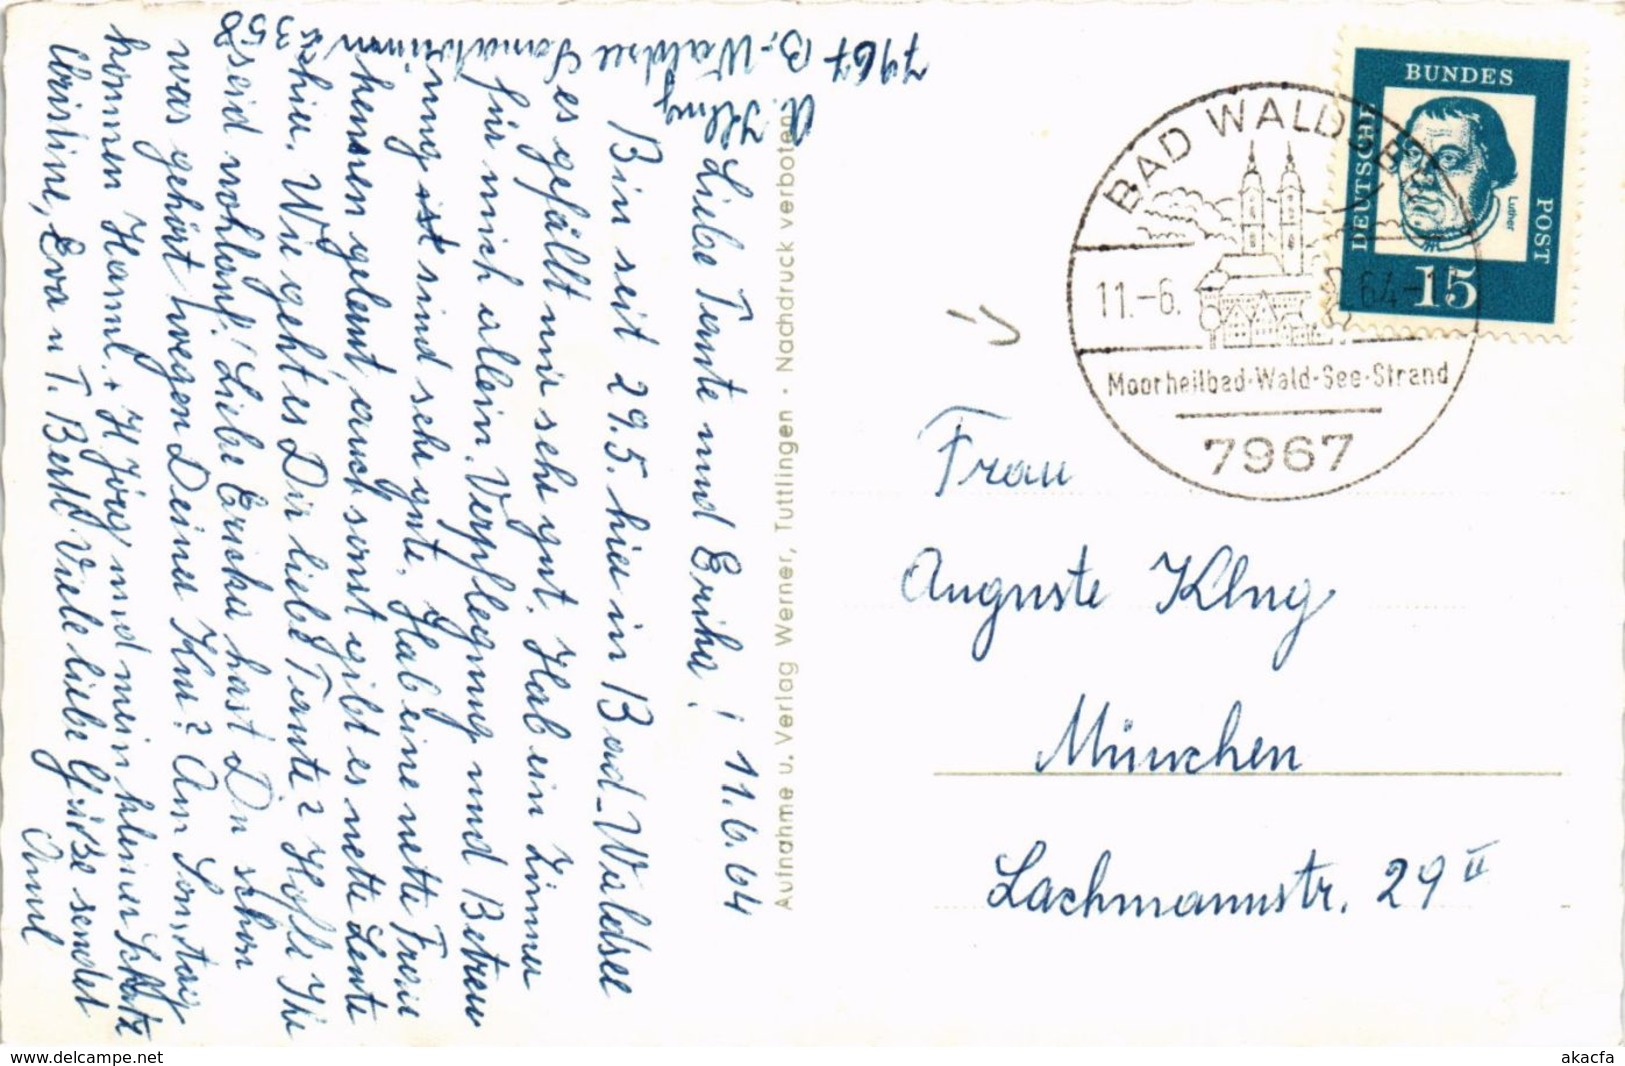 7967 B.-Waldsee Sanatorium
A. Klug
Liebe Tante und Erika! 11.6.64
Bin seit 29.5. hier in Bad-Waldsee
es gefällt mir sehr gut. Hab ein Zimmer
für mich allein. Verpflegung und Betreu
ung ist sind sehr gute. Hab eine nette Frau
kennen gelernt, auch sonst gibt es nette Leute
hier. Wie geht es Dir liebe Tante? Hoffe Ihr
seid wohlauf! Liebe Ericka hast Du schon
was gehört wegen Deiner Kur? Am Sonntag
kommen Hanni + H. Jörg und mein kleiner Schatz
Christine, Eva u. T. Berta Viele liebe Grüße sendet
Aufnahme u. Verlag Werner, Tuttlingen · Nachdruck verboten
BAD WALDSEE
11.-6. 64-1
Moorheilbad-Wald-See-Strand
7967
DEUTSCHE
BUNDES
POST
Luther
15
Frau
Auguste Klug
München
Lachmannstr. 29 II
akacfa
www.delcampe.net